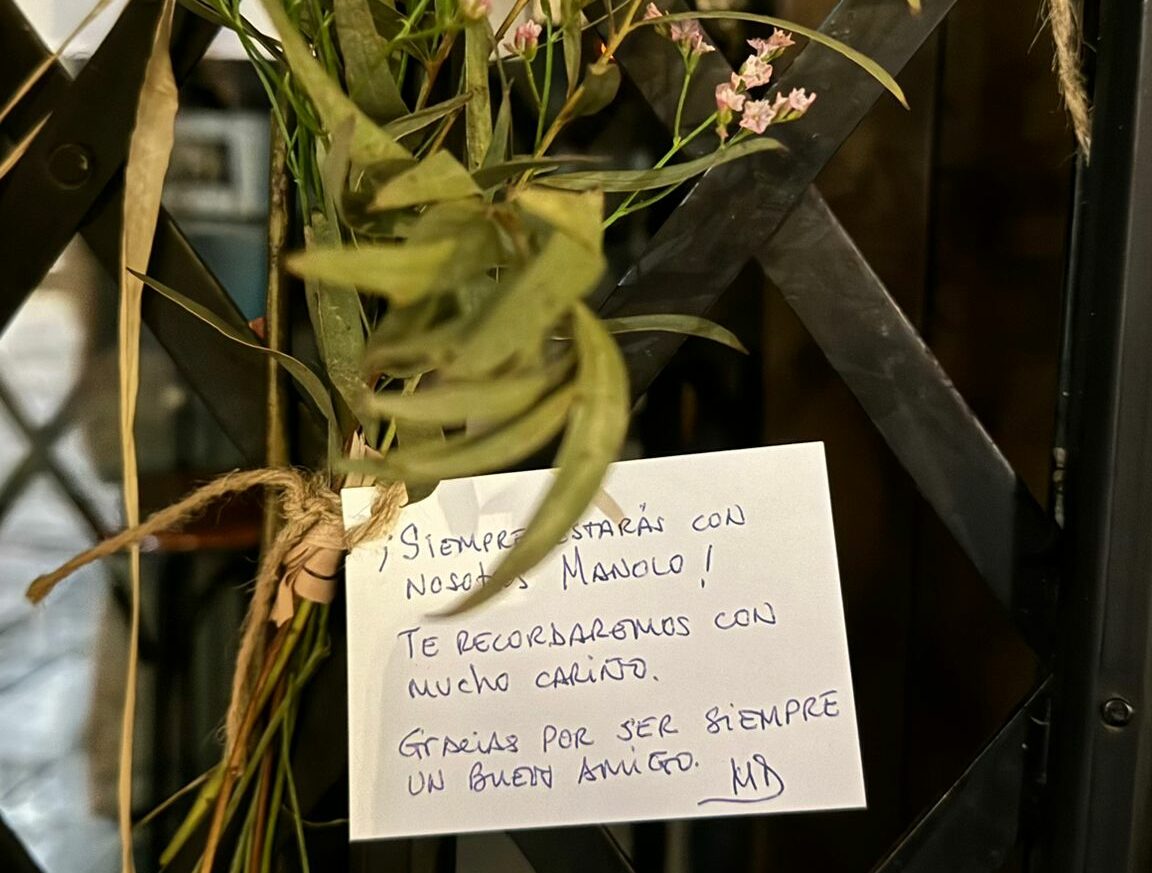 ¡SIEMPRE ESTARÁS CON
NOSOTROS MANOLO!
TE RECORDAREMOS CON
MUCHO CARIÑO.
GRACIAS POR SER SIEMPRE
UN BUEN AMIGO. MB